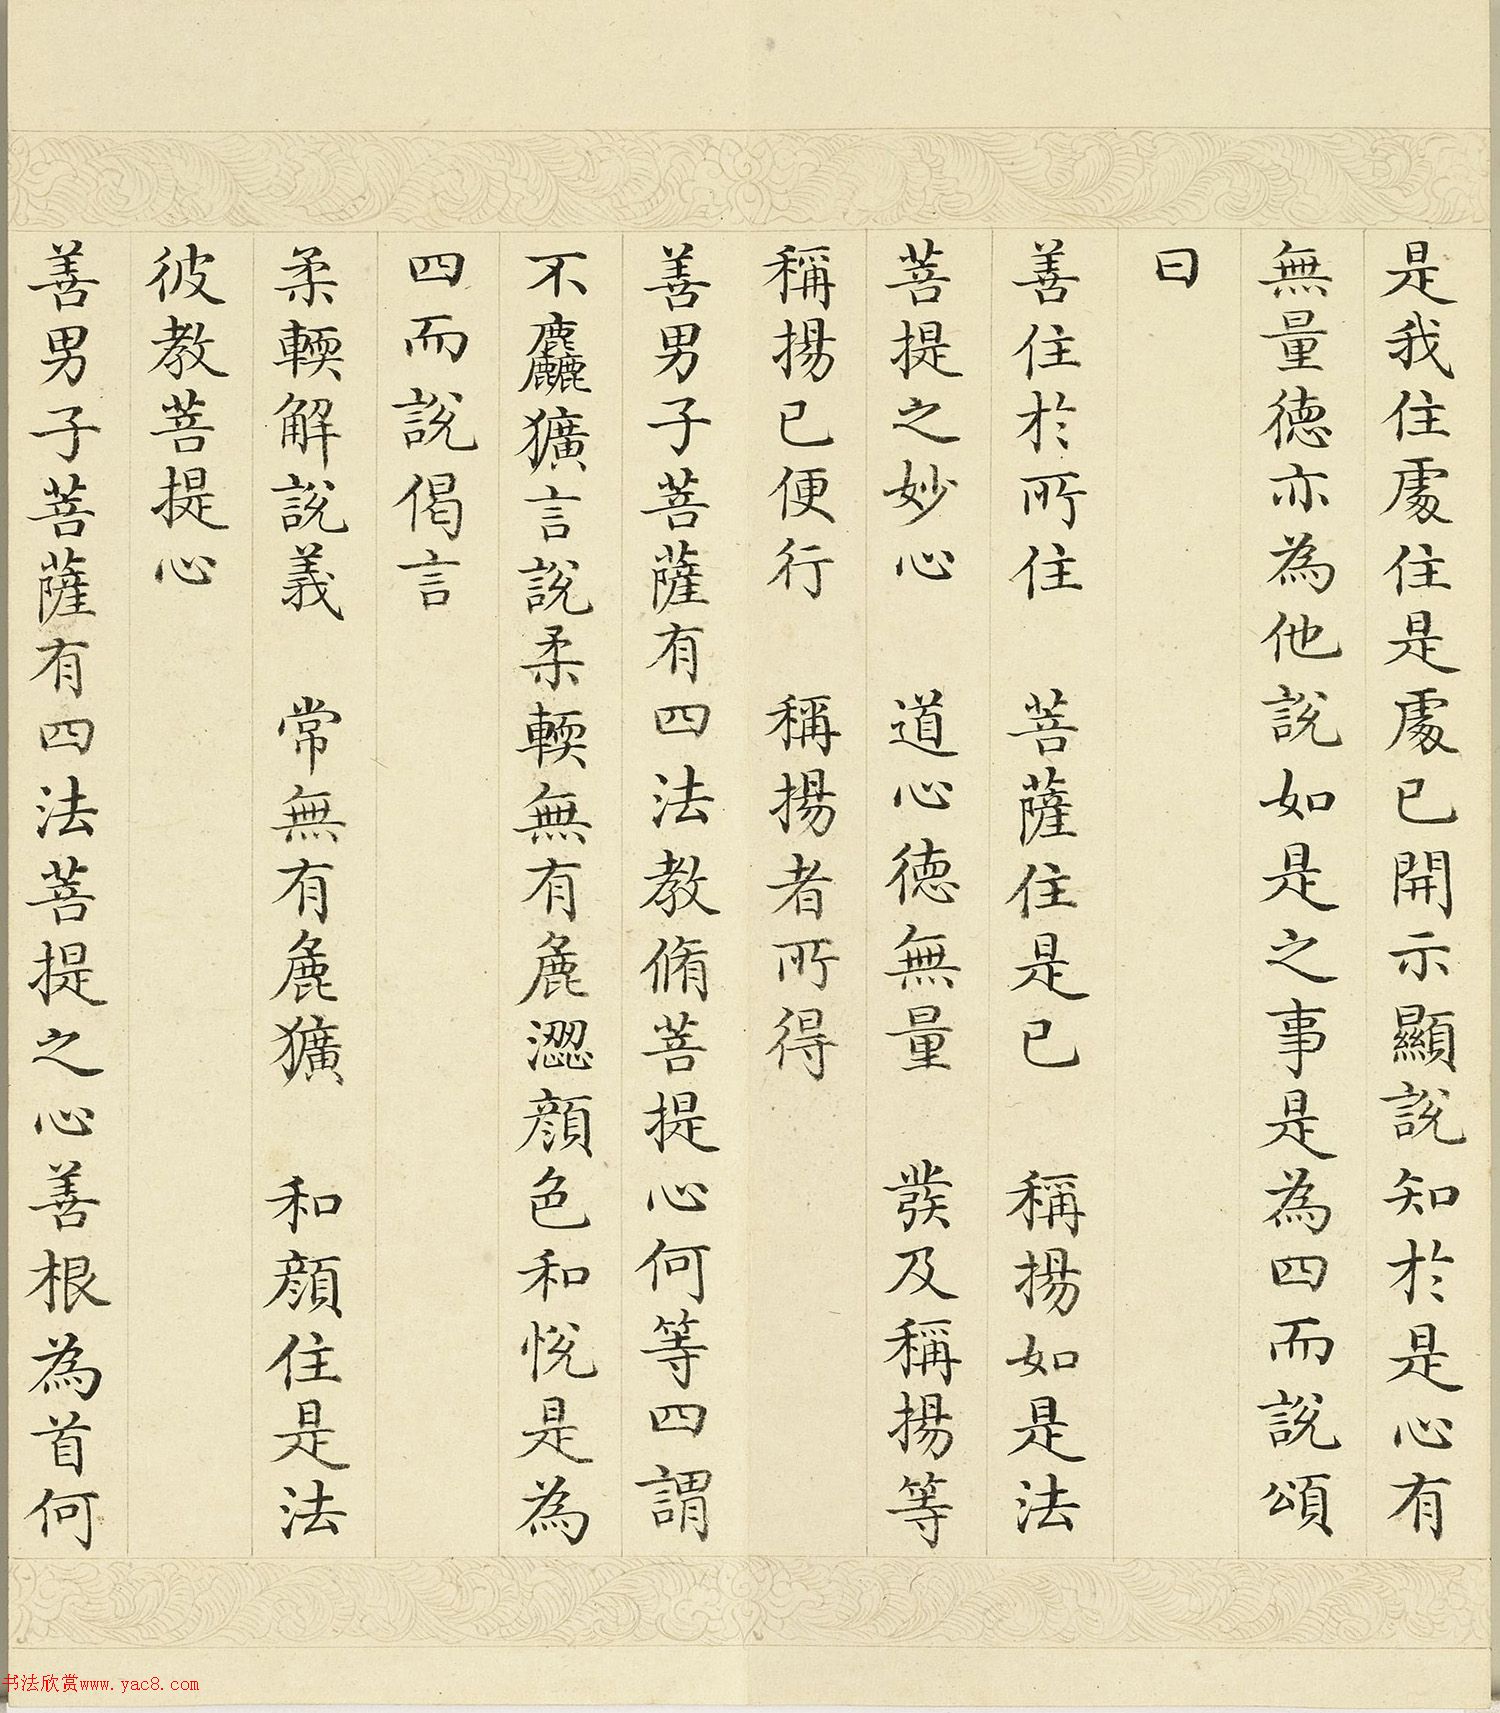 是我住處住是處已開示顯說知於是心有
無量德亦為他說如是之事是為四而說頌
曰
善住於所住　菩薩住是已　稱揚如是法
菩提之妙心　道心德無量　發及稱揚等
稱揚已便行　稱揚者所得
善男子菩薩有四法教脩菩提心何等四謂
不麤獷言說柔輭無有麁澀顏色和悅是為
四而說偈言
柔輭解說義　常無有麁獷　和顏住是法
彼教菩提心
善男子菩薩有四法菩提之心善根為首何
书法欣赏www.yac8.com